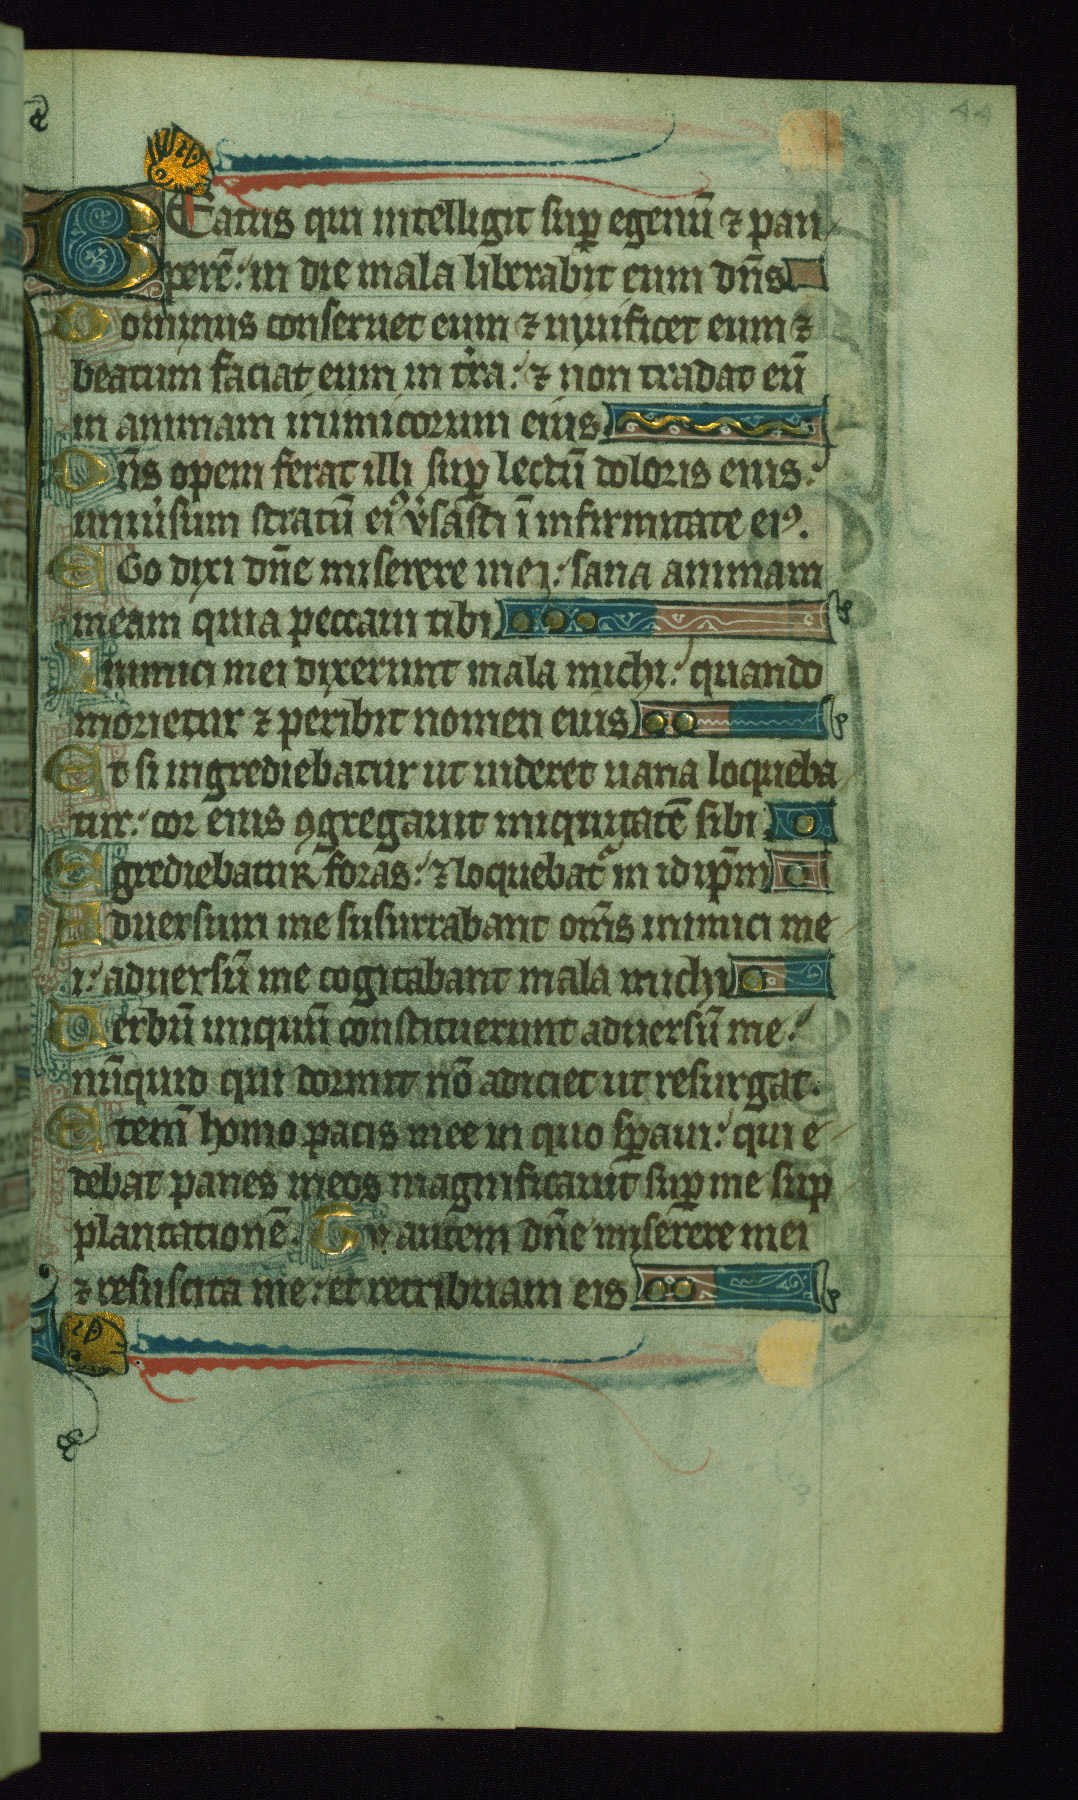 44
BEatus qui intelligit sup egenũ ⁊ pau
perẽ: in die mala liberabit eum dñs
Dominus conseruet eum ⁊ uiuificet eum ⁊
beatum faciat eum in tr̃a: ⁊ non tradat eũ
in animam inimicorum eius
Dñs opem ferat illi sup lectũ doloris eius:
uniũsum stratũ eiꝰ ũsasti ĩ infirmitate eiꝰ.
EGo dixi dñe miserere mei: sana animam
meam quia peccaui tibi
Inimici mei dixerunt mala michi: quando
morietur ⁊ peribit nomen eius
Et si ingrediebatur ut uideret uana loqueba
tur: cor eius ꝯgregauit iniquitatẽ sibi
Egrediebatur foras: ⁊ loquebat᷑ in id ip̃m
Aduersum me susurrabant om̃s inimici me
i: aduersũ me cogitabant mala michi
Uerbũ iniquũ constituerunt aduersũ me:
nũquid qui dormit nõ adiciet ut resurgat.
Etem̃ homo pacis mee in quo sꝑaui: qui e
debat panes meos magnificauit suꝑ me sup
plantationẽ. Tu autem dñe miserere mei
⁊ resuscita me: et retribuam eis